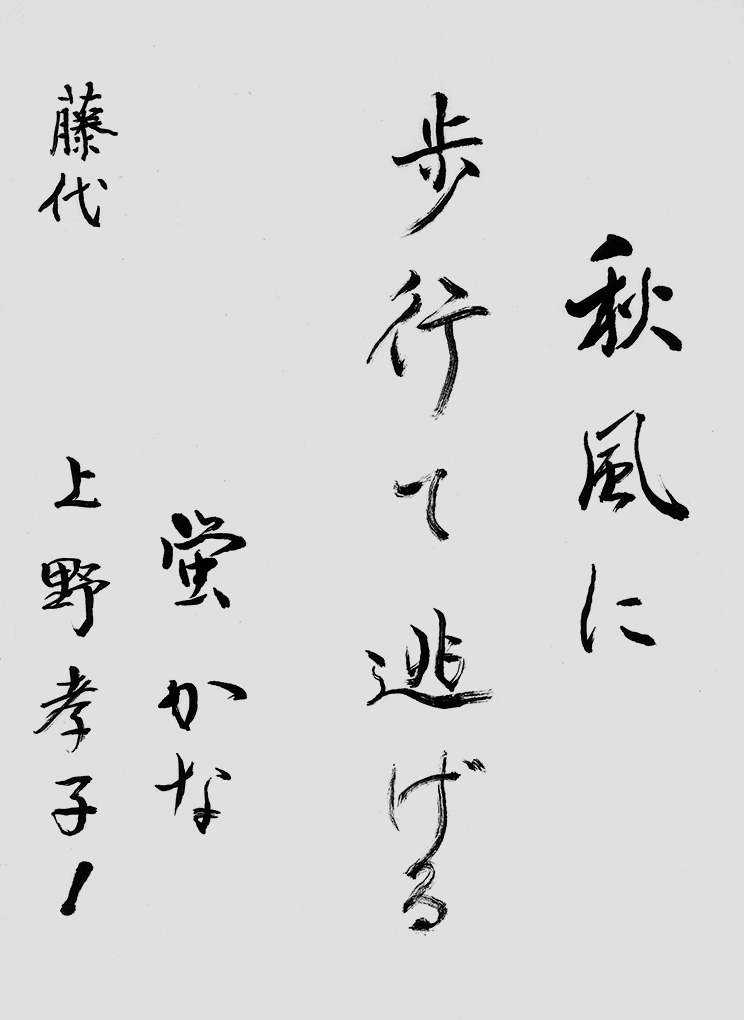 秋風に
歩行て逃げる
蛍かな
藤代 上野孝子